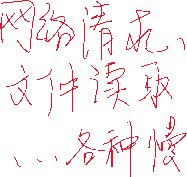 网络请求、
文件读取
、、、各种慢